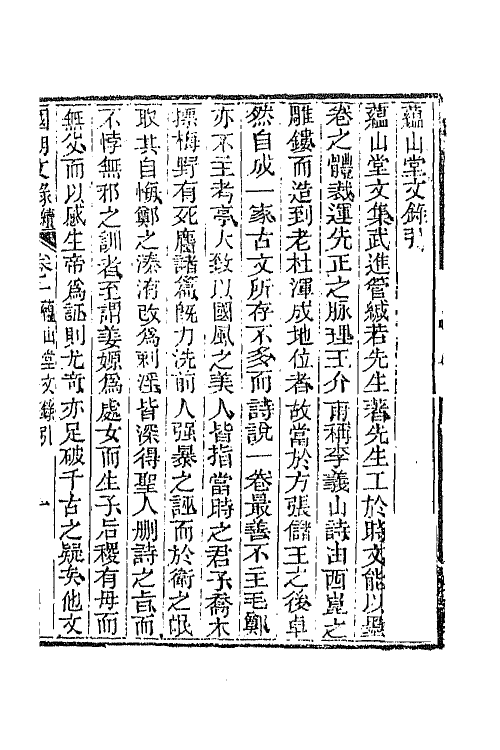 蘊山堂文錄引
蘊山堂文集武進管緘若先生著先生工於時文能以墨
卷之體裁運先正之脉理王介甫稱李義山詩由西崑之
雕鏤而造到老杜渾成地位者故當於方張儲王之後卓
然自成一家古文所存不多而詩說一卷最善不主毛鄭
亦不主考亭大致以國風之美人皆指當時之君子喬木
摽梅野有死麕諸篇旣力洗前人强暴之誣而於衛之氓
取其自悔鄭之溱洧改爲刺淫皆深得聖人刪詩之旨而
不悖無邪之訓者至謂姜嫄爲處女而生子后稷有母而
無父而以感生帝爲誣則尤奇亦足破千古之疑矣他文
國朝文錄續 卷一 蘊山堂文錄引 一